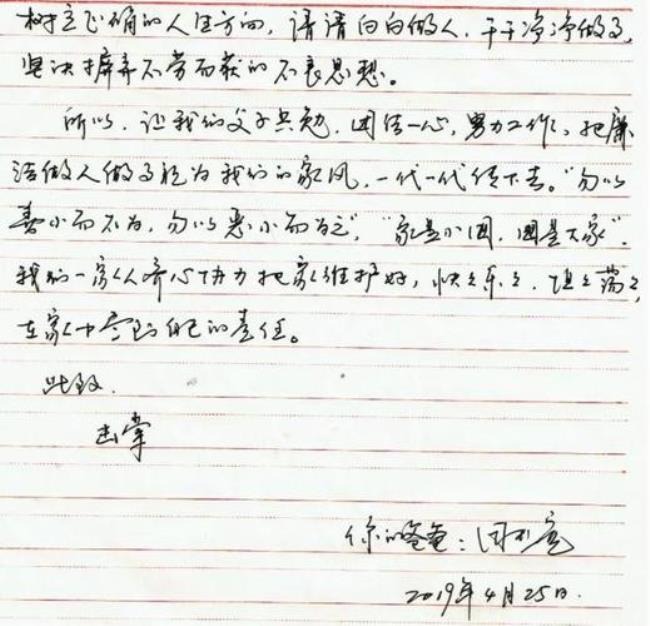 树立正确的人生方向，清清白白做人，干干净净做事，
坚决摒弃不劳而获的不良思想。
所以，让我们父子共勉，团结一心，努力工作，把廉
洁做人做事视为我们的家风，一代一代传下去。“勿以
善小而不为，勿以恶小而为之”，“家是小国，国是大家”。
我们一家人齐心协力把家维护好，快快乐乐，坦坦荡荡，
在家中尽到自己的责任。
此致
击掌
你的爸爸：
2019年4月25日.